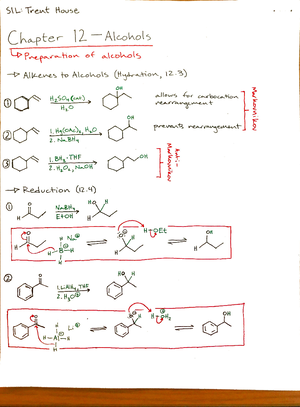 SIL: Trent House
Chapter 12 – Alcohols
↳ Preparation of alcohols
→ Alkenes to Alcohols (Hydration, 12.3)
① H₂SO₄ (aq) OH allows for carbocation
H₂O rearrangement
② 1. Hg(OAc)₂, H₂O OH prevents rearrangement
2. NaBH₄
Markovnikov
③ 1. BH₃·THF OH
2. H₂O₂, NaOH
Anti-Markovnikov
→ Reduction (12.4)
① O NaBH₄ H OH
EtOH
O H Na⊕ H–B–H H O⊖ H H–OEt OH
② O 1. LiAlH₄, THF H OH
2. H₃O⊕
O H Li⊕ H–Al–H H O⊖ H H–OH₂ OH